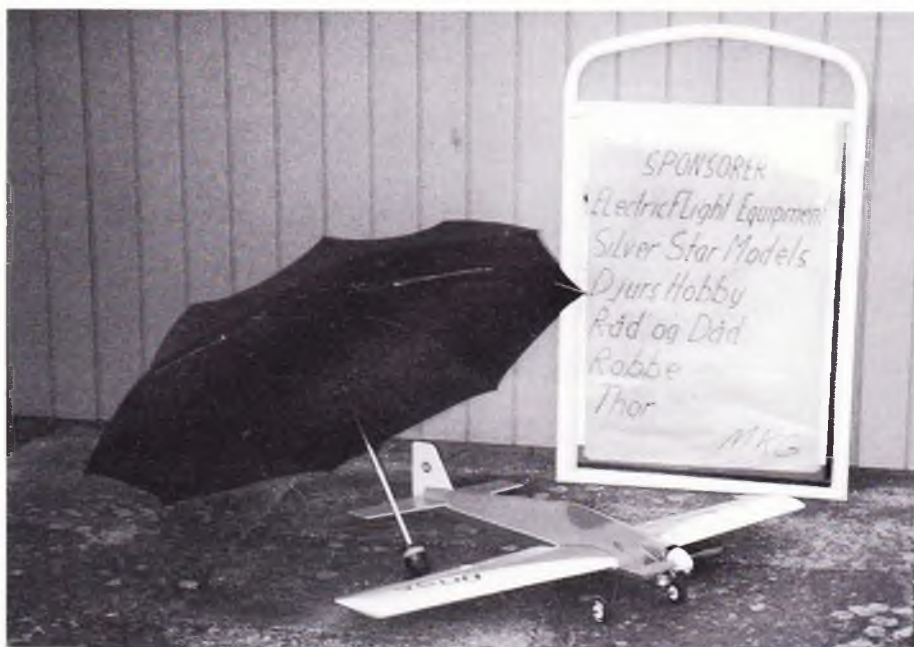 SPONSORER
Electric Flight Equipment
Silver Star Models
Djurs Hobby
Råd og Dåd
Robbe
Thor
MKG